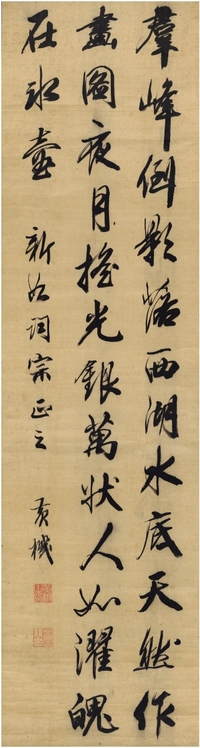 羣峰倒影落西湖水底天然作
畫圖夜月搖光銀萬狀人如濯魄
在冰壺 新如詞宗正之 黃機